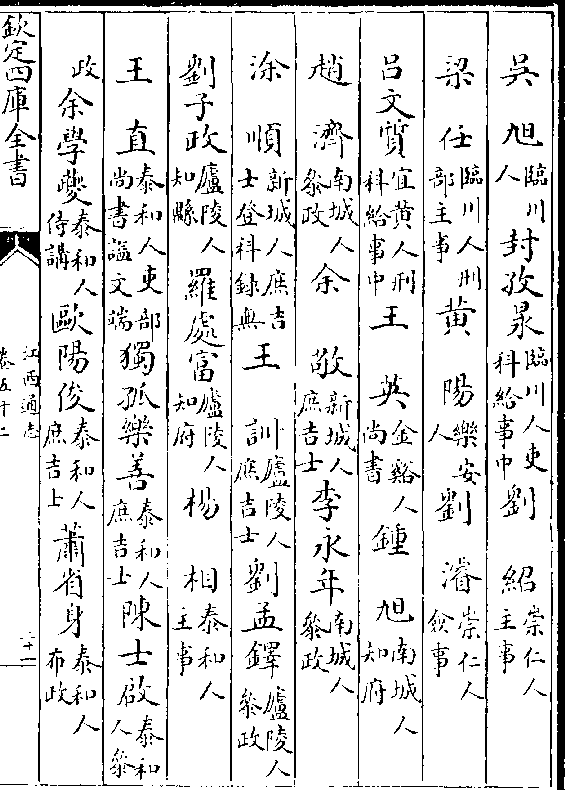 吳旭臨川人封孜杲臨川人吏科給事中劉紹崇仁人主事
梁任臨川人刑部主事黃陽樂安人劉濬崇仁人僉事
呂文質宜黃人刑科給事中王英金谿人尚書鍾旭南城人知府
趙濟南城人叅政余敬新城人庶吉士李永年南城人叅政
涂順新城人庶吉士登科錄無王訓廬陵人庶吉士劉孟鐸廬陵人叅政
劉子政廬陵人知縣羅處富廬陵人知府楊相泰和人主事
王直泰和人吏部尚書諡文端獨孤樂善泰和人庶吉士陳士啟泰和人叅
政余學夔泰和人侍講歐陽俊泰和人庶吉士蕭省身泰和人布政
欽定四庫全書
江西通志
卷五十二
二十一